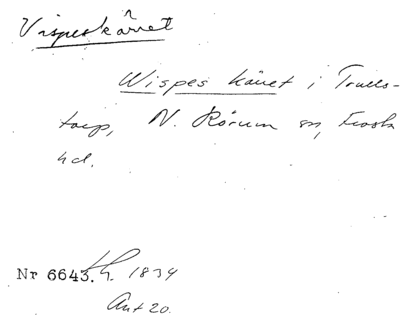 Vispeskärret
Wispes kärret i Trulls-
torp, N. Rörum sn, Frosta
hd.
Nr 6643. h. 1834
Akt 20.